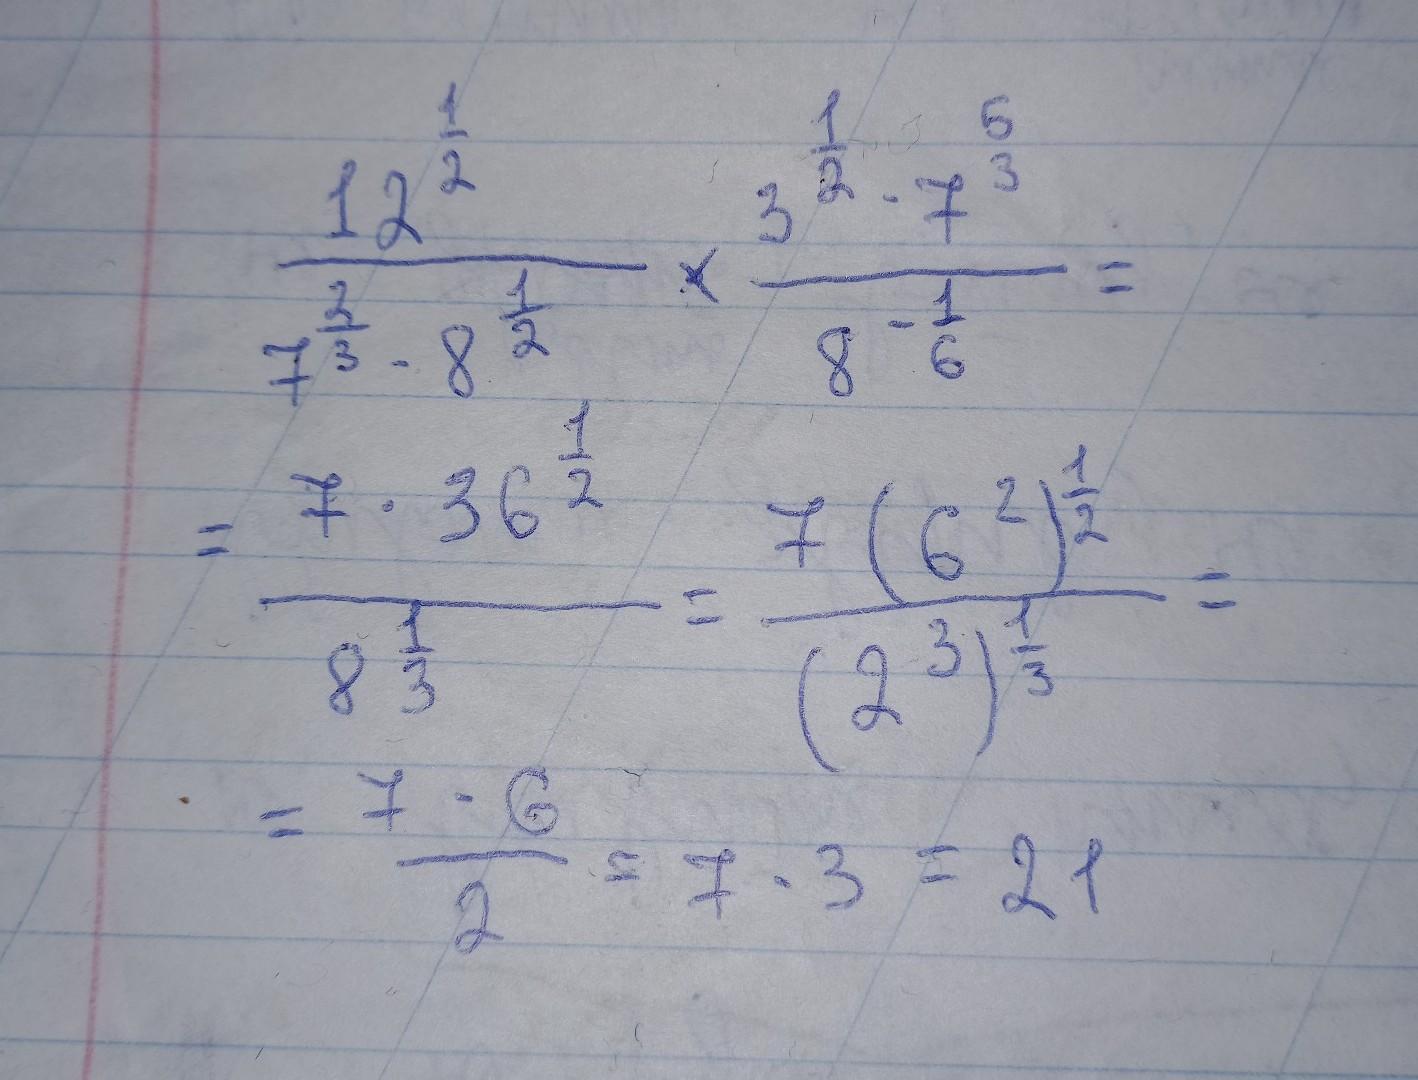 12^(1/2) / (7^(2/3) · 8^(1/2)) × (3^(1/2) · 7^(5/3)) / 8^(-1/6) =
= (7 · 36^(1/2)) / 8^(1/3) = (7(6^2)^(1/2)) / (2^3)^(1/3) =
= (7 · 6) / 2 = 7 · 3 = 21